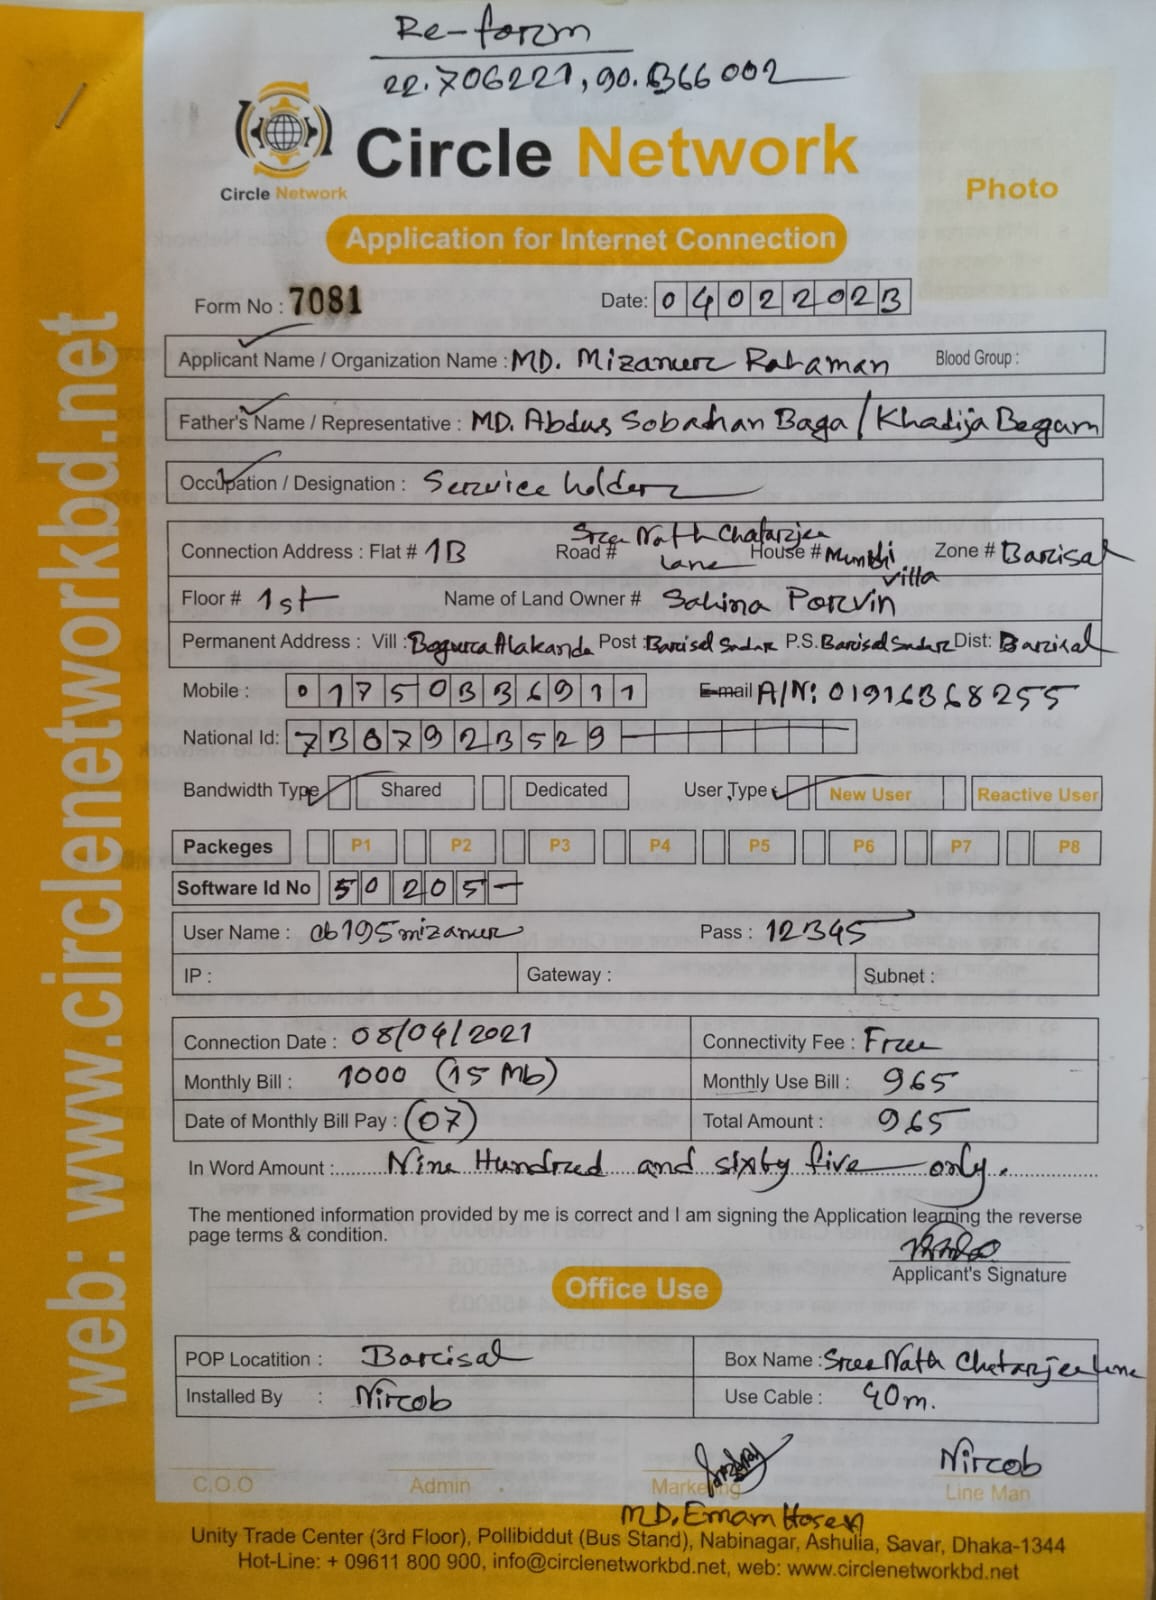 Re-form
22.706221, 90.366002
Circle Network
Circle Network
Photo
Application for Internet Connection
Form No : 7081 Date: 04022023
Applicant Name / Organization Name : MD. Mizanur Rahaman Blood Group :
Father's Name / Representative : MD. Abdus Sobahan Baga / Khadija Begam
Occupation / Designation : Service holder
Connection Address : Flat # 1B Road # Sree Nath Chatarjee lane House # Munshi villa Zone # Barisal
Floor # 1st Name of Land Owner # Sahina Porvin
Permanent Address : Vill : Bogura Alakanda Post : Barisal Sadar P.S. Barisal Sadar Dist: Barisal
Mobile : 01750336911 E-mail A/N: 01916368255
National Id: 7367923529
Bandwidth Type Shared Dedicated User Type New User Reactive User
Packeges P1 P2 P3 P4 P5 P6 P7 P8
Software Id No 50205-
User Name : cb195mizanur Pass : 12345
IP : Gateway : Subnet :
Connection Date : 08/04/2021 Connectivity Fee : Free
Monthly Bill : 1000 (15 Mb) Monthly Use Bill : 965
Date of Monthly Bill Pay : (07) Total Amount : 965
In Word Amount : Nine Hundred and sixty five only.
The mentioned information provided by me is correct and I am signing the Application learning the reverse
page terms & condition.
Applicant's Signature
Office Use
POP Locatition : Barisal Box Name : Sree Nath Chatarjee lane
Installed By : Nirob Use Cable : 40m.
Nirob
C.O.O Admin Marketing Line Man
MD. Emam Hosen
Unity Trade Center (3rd Floor), Pollibiddut (Bus Stand), Nabinagar, Ashulia, Savar, Dhaka-1344
Hot-Line: + 09611 800 900, info@circlenetworkbd.net, web: www.circlenetworkbd.net
web: www.circlenetworkbd.net